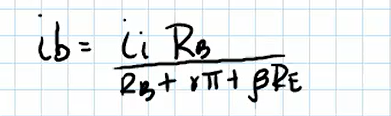 ib = ii RB
RB + rπ + βRE